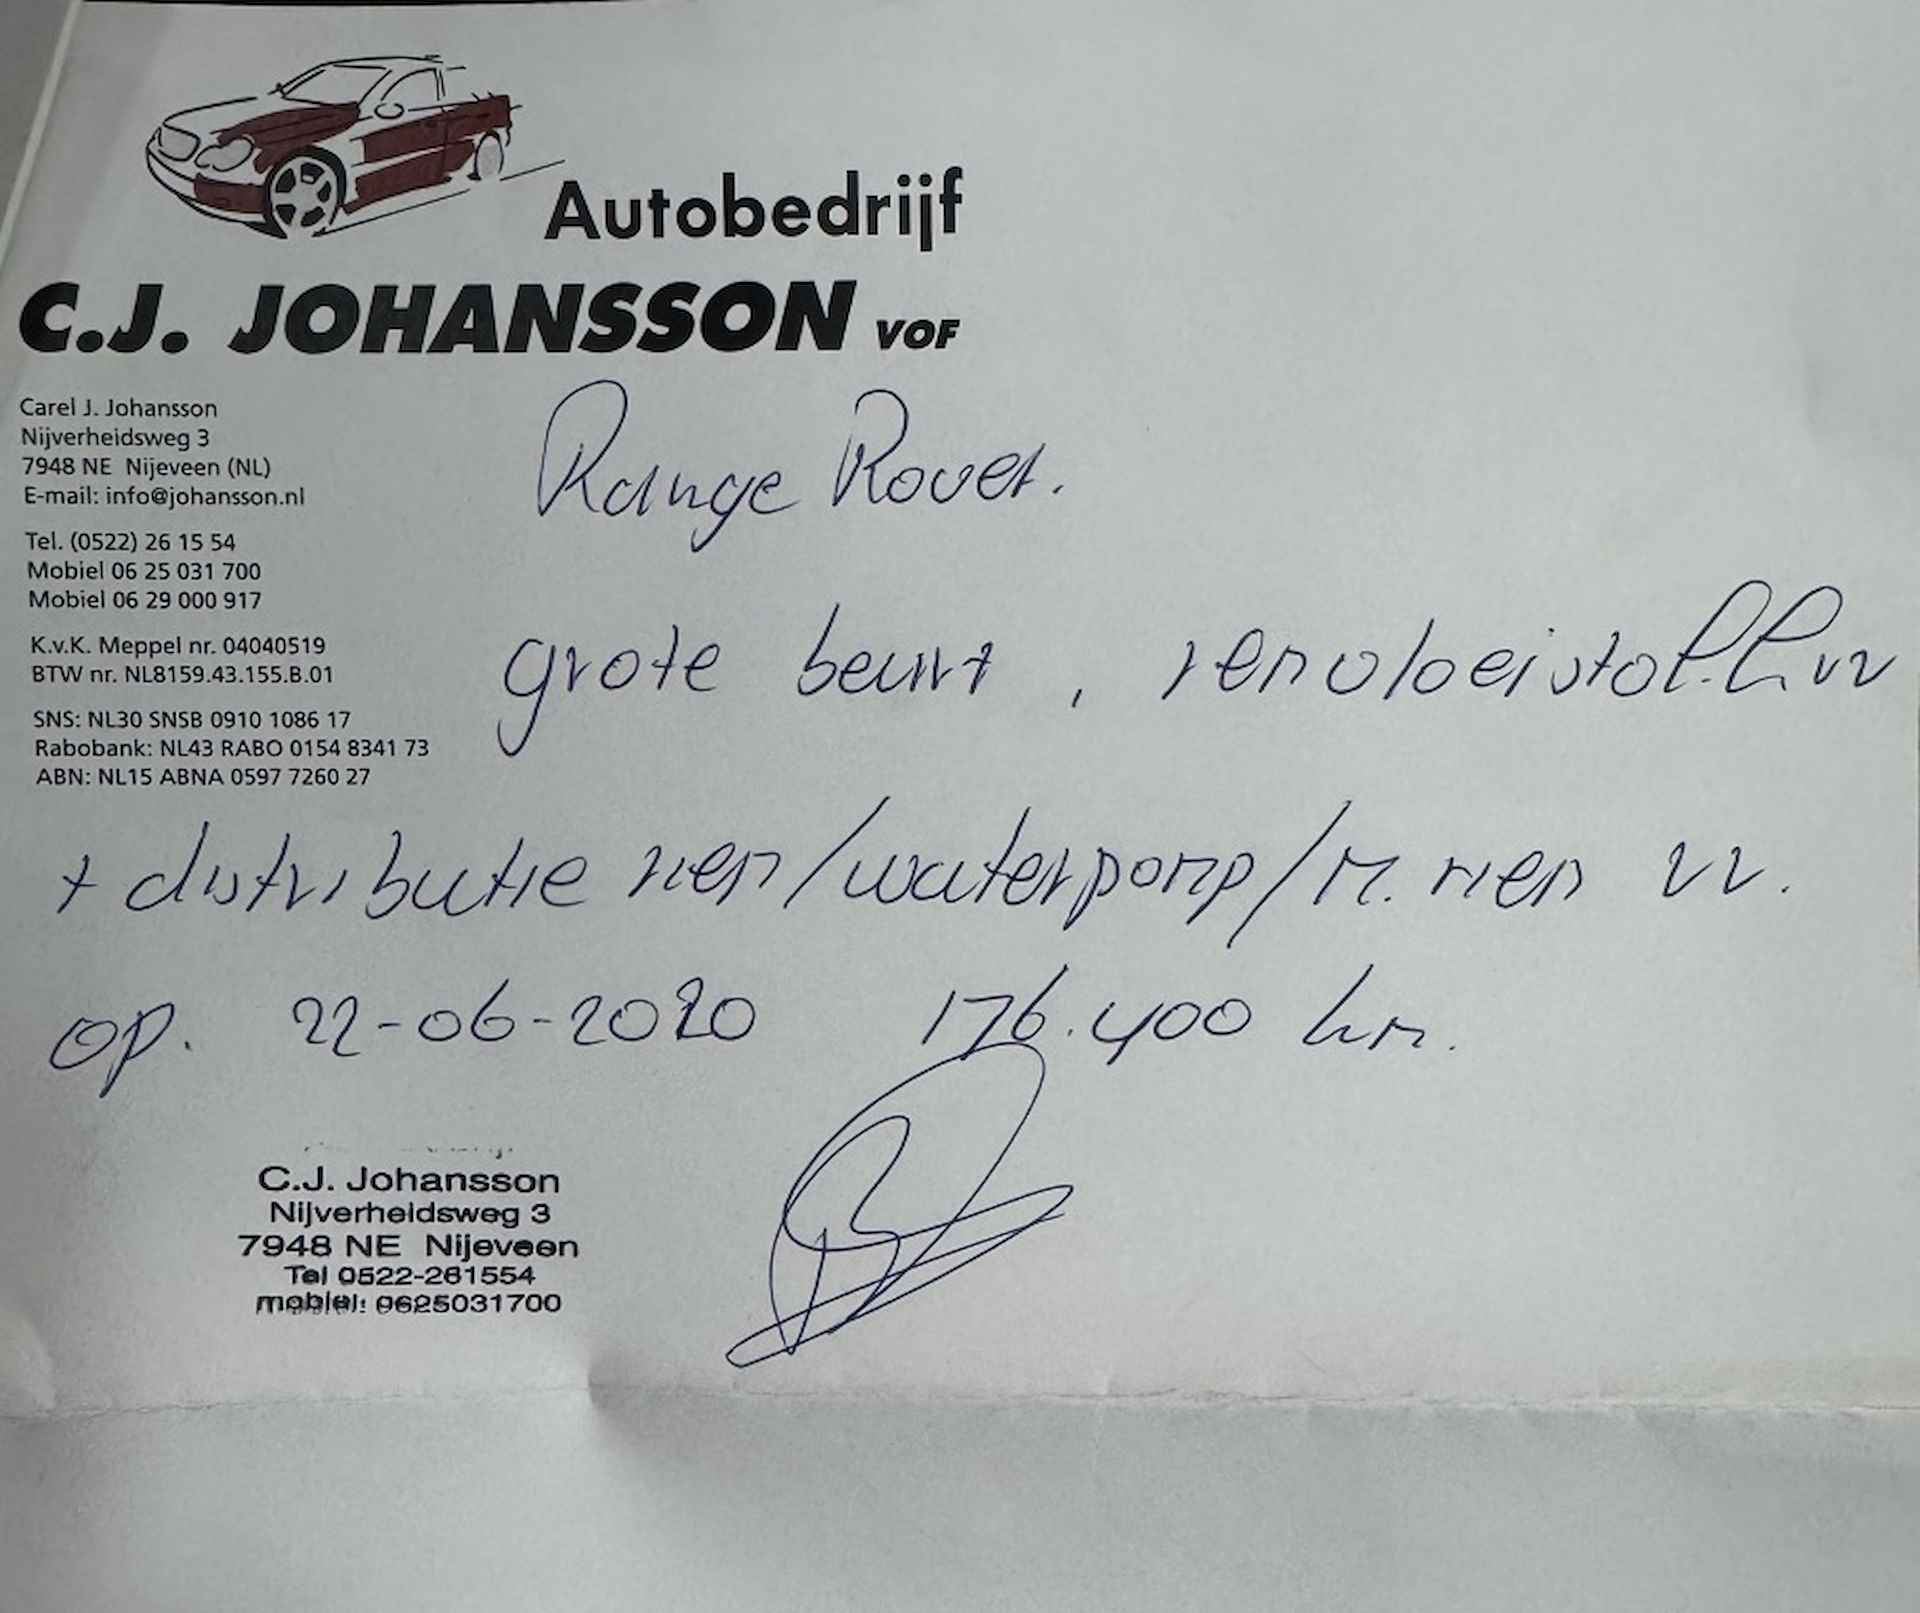 Autobedrijf
C.J. JOHANSSON VOF
Carel J. Johansson
Nijverheidsweg 3
7948 NE Nijeveen (NL)
E-mail: info@johansson.nl
Tel. (0522) 26 15 54
Mobiel 06 25 031 700
Mobiel 06 29 000 917
K.v.K. Meppel nr. 04040519
BTW nr. NL8159.43.155.B.01
SNS: NL30 SNSB 0910 1086 17
Rabobank: NL43 RABO 0154 8341 73
ABN: NL15 ABNA 0597 7260 27
Range Rover.
grote beurt, remvloeistof vv
+ distributie riem/waterpomp/m. riem vv.
op. 22-06-2020 176.400 km.
C.J. Johansson
Nijverheidsweg 3
7948 NE Nijeveen
Tel 0522-261554
mobiel: 0625031700